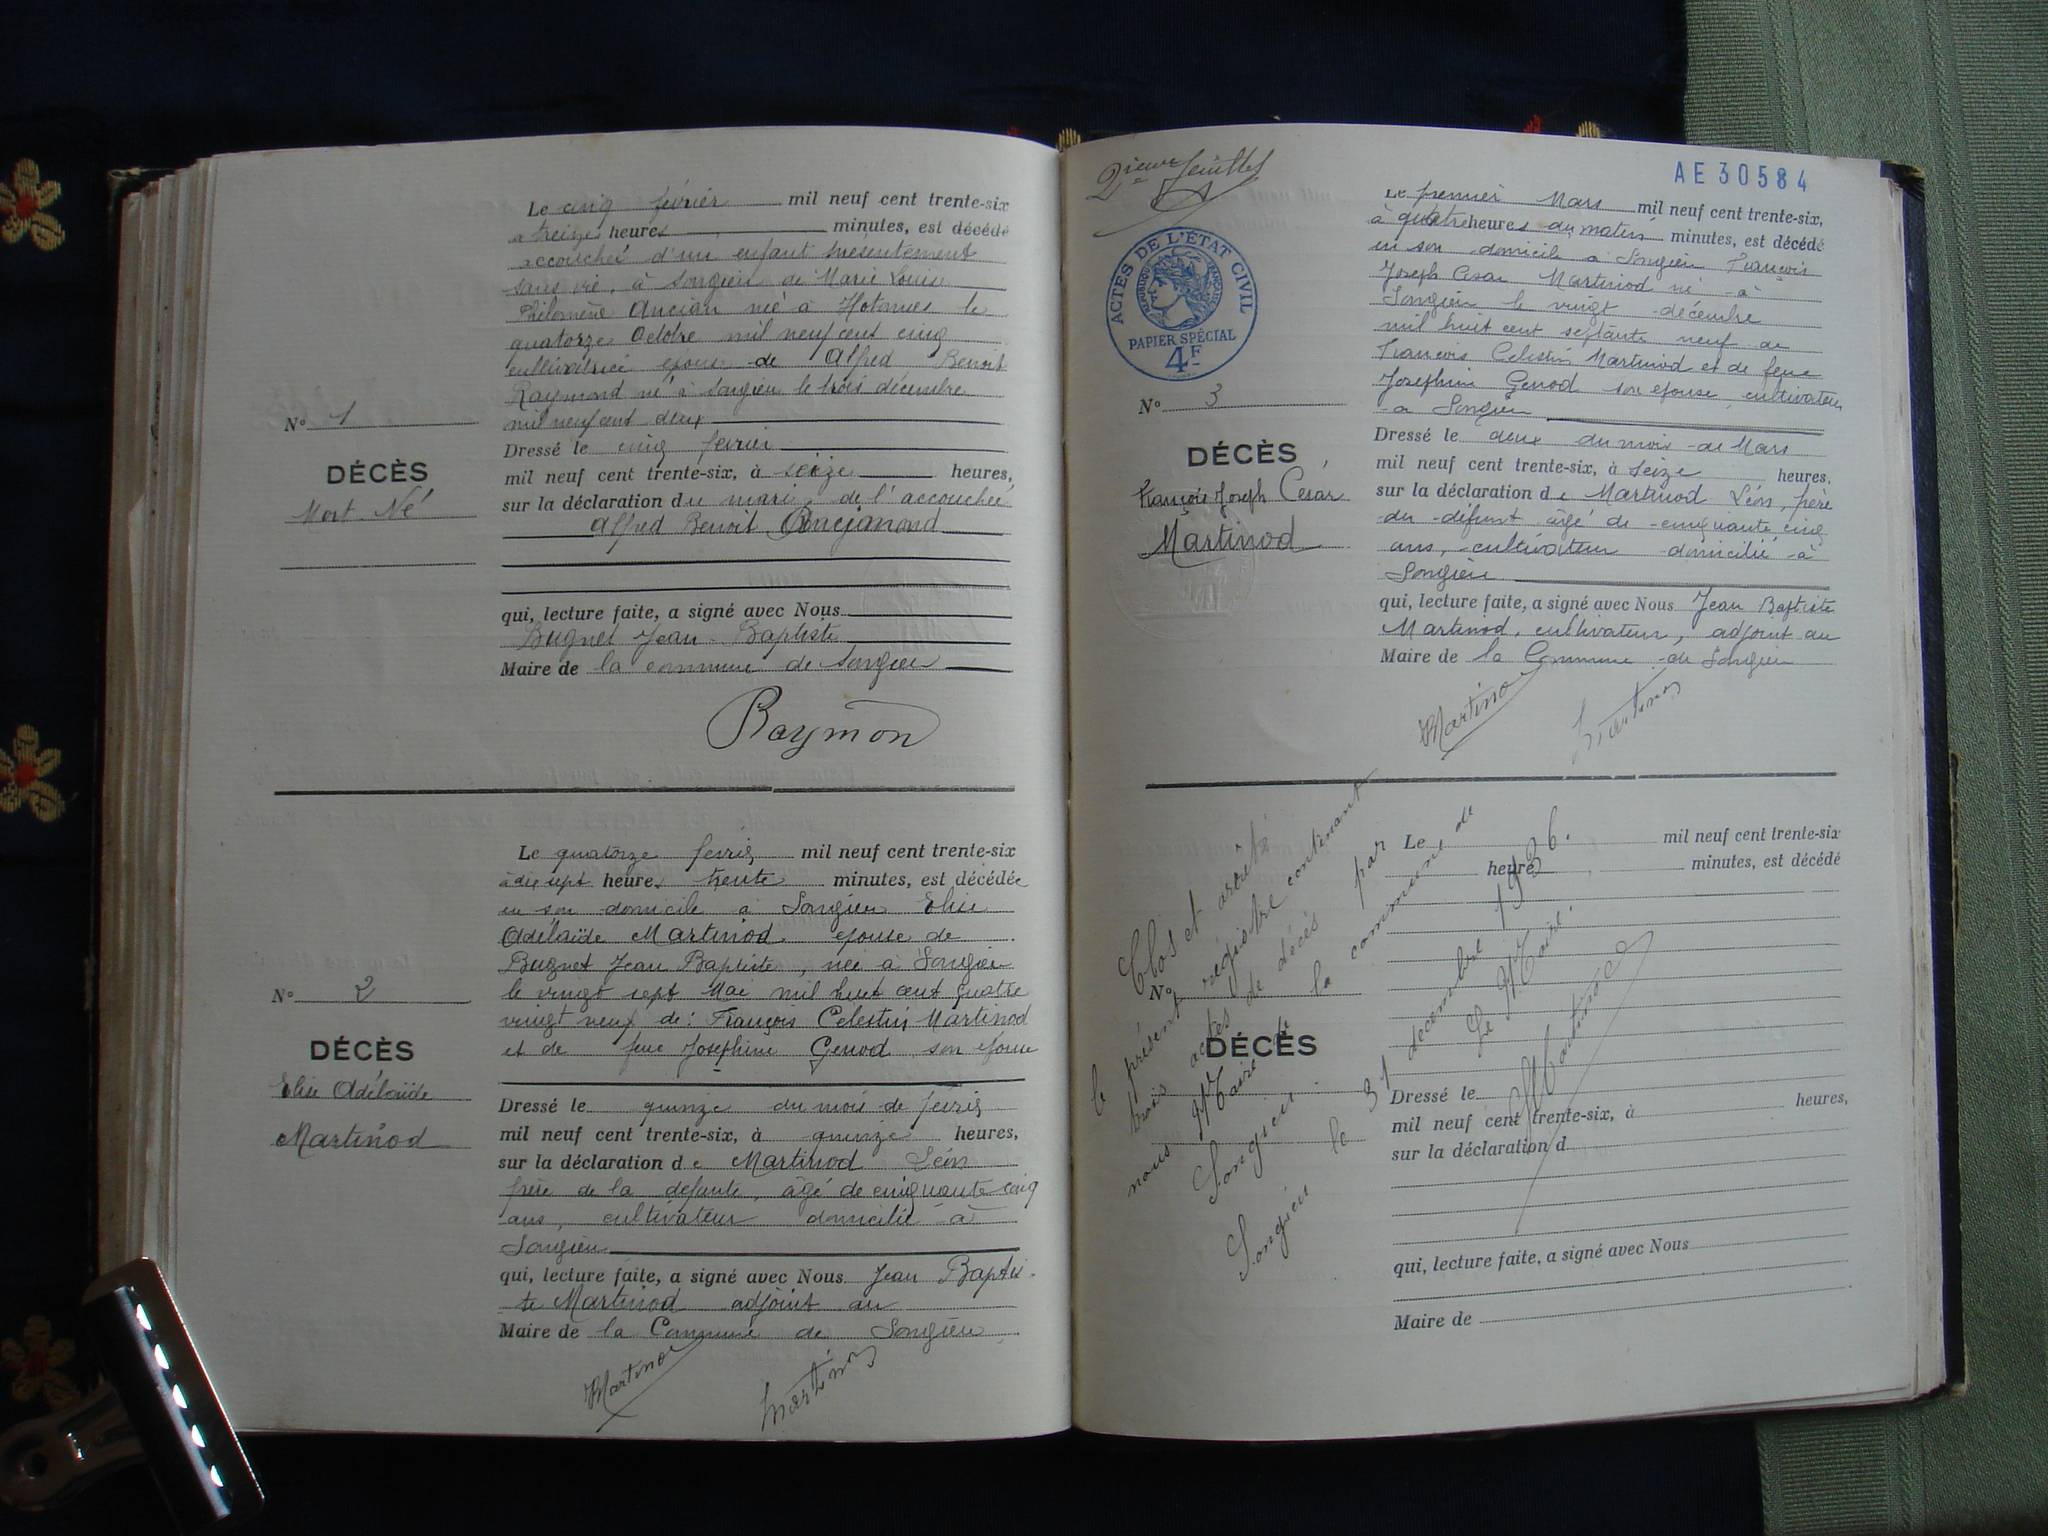 Le cinq février mil neuf cent trente-six
à treize heures minutes, est décédé
accouchée d'un enfant présentement
sans vie, à Songieu de Marie Louise
Philomène Ancian née à Hotonnes le
quatorze Octobre mil neuf cent cinq
cultivatrice épouse de Alfred Benoit
Raymond né à Songieu le trois décembre
mil neuf cent deux
N° 1
DÉCÈS
Mort Né
Dressé le cinq février
mil neuf cent trente-six, à seize heures,
sur la déclaration du mari de l'accouchée
Alfred Benoit
qui, lecture faite, a signé avec Nous
Bugnet Jean-Baptiste
Maire de la commune de Songieu
Raymon
Le quatorze février mil neuf cent trente-six
à dix sept heures trente minutes, est décédée
en son domicile à Songieu Elise
Adélaïde Martinod épouse de
Bugnet Jean Baptiste, née à Songieu
le vingt sept Mai mil huit cent quatre
vingt neuf de : François Célestin Martinod
et de feue Joséphine Genod son épouse
N° 2
DÉCÈS
Elise Adélaïde
Martinod
Dressé le quinze du mois de février
mil neuf cent trente-six, à quinze heures,
sur la déclaration de Martinod Léon
frère de la défunte, âgé de cinquante cinq
ans, cultivateur domicilié à
Songieu
qui, lecture faite, a signé avec Nous Jean Baptis-
te Martinod adjoint au
Maire de la Commune de Songieu
Martinod
Martinod
2ième feuillet
AE 30584
ACTES DE L'ÉTAT CIVIL
RÉPUBLIQUE FRANÇAISE
PAPIER SPÉCIAL
4F
Le premier Mars mil neuf cent trente-six,
à quatre heures du matin minutes, est décédé
en son domicile à Songieu François
Joseph César Martinod né à
Songieu le vingt décembre
mil huit cent septante neuf de
François Celestin Martinod et de feue
Josephin Genod son épouse, cultivateur
à Songieu
N° 3
DÉCÈS
François Joseph César
Martinod
Dressé le deux du mois de Mars
mil neuf cent trente-six, à seize heures,
sur la déclaration de Martinod Léon, père
du défunt âgé de cinquante cinq
ans, cultivateur domicilié à
Songieu
qui, lecture faite, a signé avec Nous Jean Baptiste
Martinod, cultivateur, adjoint au
Maire de la Commune de Songieu
Martinod
Martinod
Le mil neuf cent trente-six
heure minutes, est décédé
N°
DÉCÈS
Dressé le
mil neuf cent trente-six, à heures,
sur la déclaration d
qui, lecture faite, a signé avec Nous
Maire de
Clos et arrêté
le présent registre contenant
trois actes de décès par
nous Maire de la commune de
Songieu.
Songieu le 31 décembre 1936.
Le Maire.
Martinod